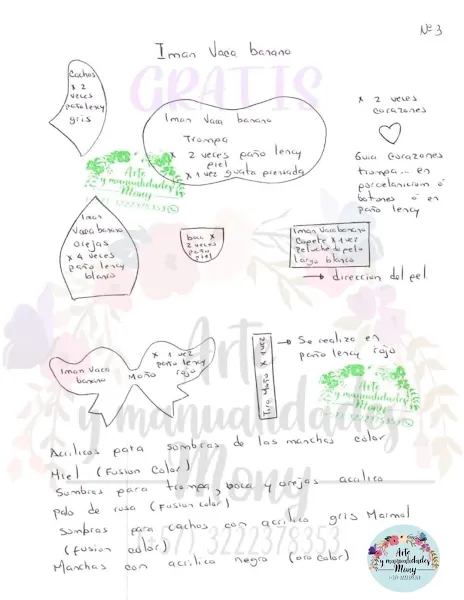 Nº 3
Iman Vaca banano
GRATIS
Cachos
x 2
veces
paño lency
gris
Iman Vaca banano
Trompa
x 2 veces paño lency
piel
x 1 vez guata prensada
x 2 veces
corazones
Guia corazones
trompa... en
porcelanicron o
botones o en
paño lency
Arte
y manualidades
Mony
3222378353
Iman
Vaca banano
orejas
x 4 veces
paño lency
blanco
boca x
2 veces
paño
piel
Iman Vaca banano
Copete x 1 vez
peluche de pelo
largo blanco
→ direccion del pel
Iman Vaca
banano
Moño
x 1 vez
paño lency
rojo
Tira Moño x 1 vez
→ Se realiza en
paño lency rojo
Arte
y manualidades
Mony
Arte
y manualidades
Mony
(+57) 3222378353
Acilicos para sombras de las manchas color
Miel (Fusion Color)
Sombras para trompa, boca y orejas acrilico
palo de rosa (Fusion color)
Sombras para cachos con acrilico gris Marmol
(fusion color)
Manchas con acrilico negro (oro Color)
Arte
y manualidades
Mony